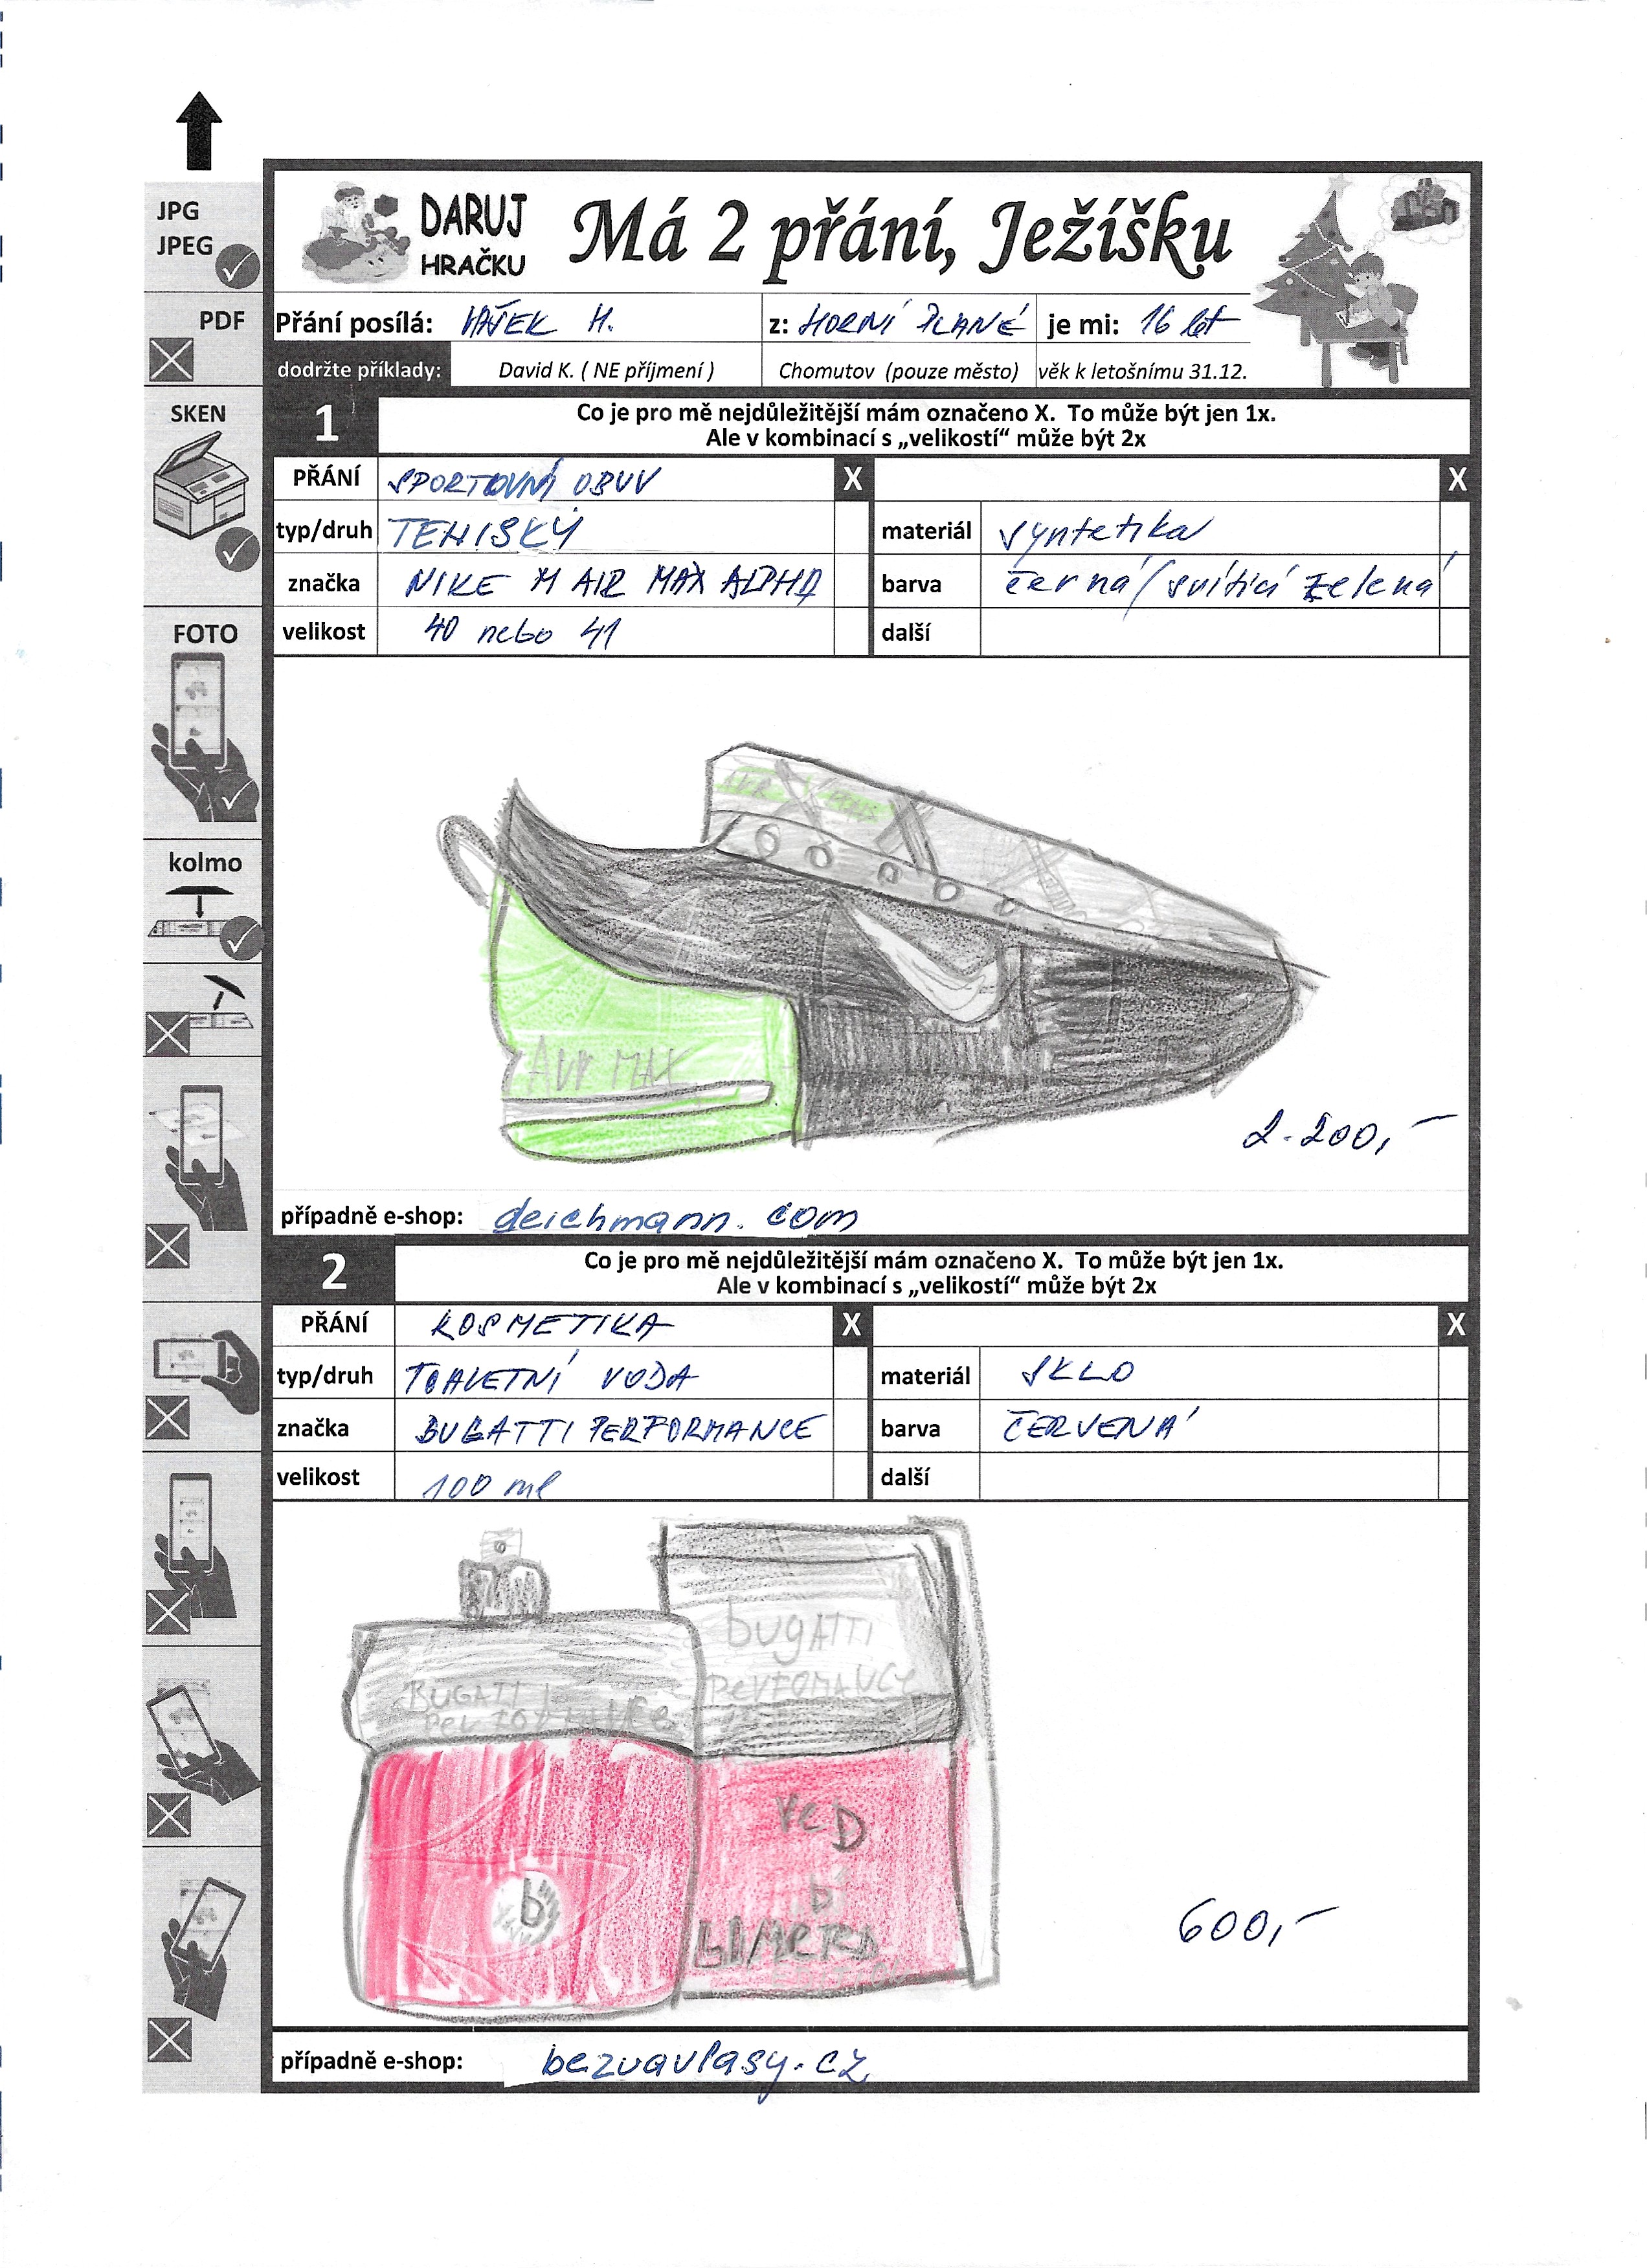 JPG
JPEG
PDF
SKEN
FOTO
kolmo
DARUJ
HRAČKU
Má 2 přání, Ježíšku
Přání posílá: VAŠEK H. z: HORNÍ PLANÉ je mi: 16 let
dodržte příklady: David K. ( NE příjmení ) Chomutov (pouze město) věk k letošnímu 31.12.
1 Co je pro mě nejdůležitější mám označeno X. To může být jen 1x.
Ale v kombinací s „velikostí“ může být 2x
PŘÁNÍ SPORTOVNÍ OBUV X X
typ/druh TENISKY materiál syntetika
značka NIKE M AIR MAX ALPHA barva černá/svítící zelená
velikost 40 nebo 41 další
AIR MAX
2.200,-
případně e-shop: deichmann.com
2 Co je pro mě nejdůležitější mám označeno X. To může být jen 1x.
Ale v kombinací s „velikostí“ může být 2x
PŘÁNÍ KOSMETIKA X X
typ/druh TOALETNÍ VODA materiál SKLO
značka BUGATTI PERFORMANCE barva ČERVENÁ
velikost 100 ml další
bugATTI
BUGATI
reD
b
b
600,-
případně e-shop: bezvavlasy.cz